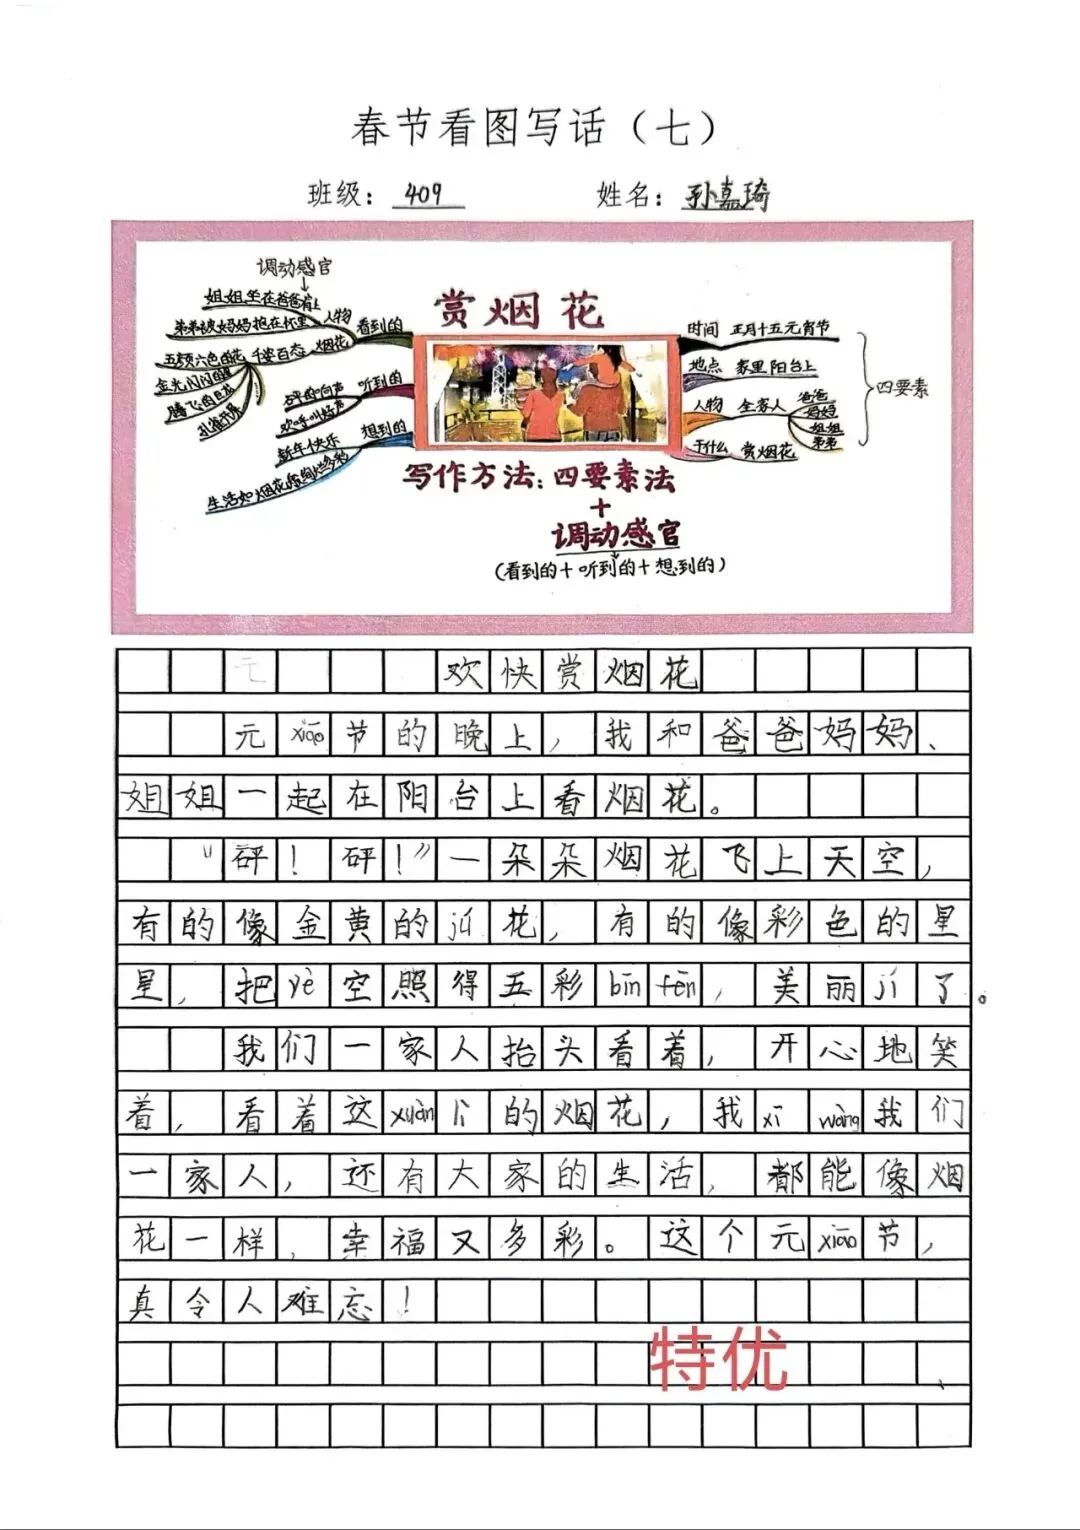 春节看图写话（七）
班级：409 姓名：孙嘉琦
调动感官
姐姐坐在爸爸肩上
弟弟被妈妈抱在怀里
人物
看到的
五颜六色的花
千姿百态
烟花
金光闪闪的
腾飞的巨龙
孔雀开屏
砰砰的响声
听到的
欢呼叫好声
新年快乐
想到的
赏烟花
时间 正月十五元宵节
地点 家里阳台上
人物 全家人
爸爸
妈妈
姐姐
弟弟
干什么 赏烟花
四要素
写作方法：四要素法
+
调动感官
(看到的+听到的+想到的)
欢快赏烟花
元xiāo节的晚上，我和爸爸妈妈、
姐姐一起在阳台上看烟花。
“砰！砰！”一朵朵烟花飞上天空，
有的像金黄的jú花，有的像彩色的星
星，把yè空照得五彩bīn fēn，美丽jí了。
我们一家人抬头看着，开心地笑
着，看着这xuàn lì的烟花，我xī wàng我们
一家人，还有大家的生活，都能像烟
花一样，幸福又多彩。这个元xiāo节，
真令人难忘！
特优